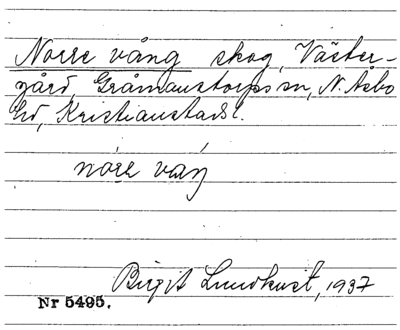 Norre vång skog, Väster-
gård, Gråmanstorps sn, N. Åsbo
hd, Kristianstads l.
nòrè váŋ
Birgit Lundkvist, 1937
Nr 5495.